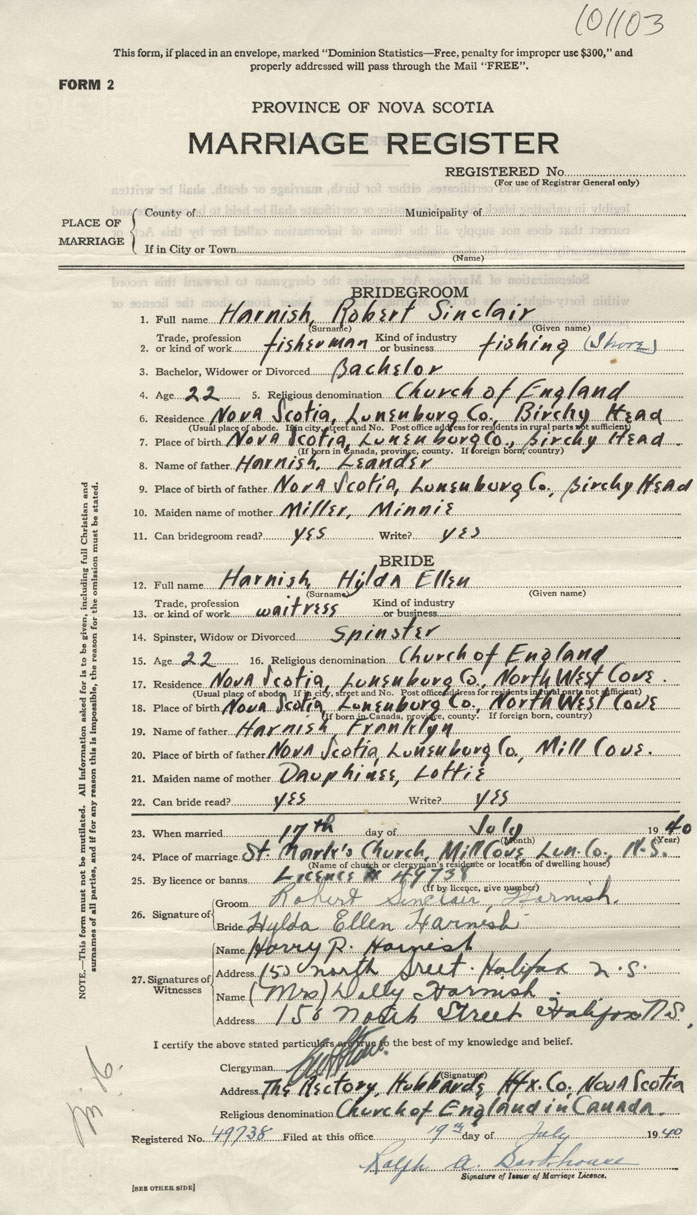 101103
This form, if placed in an envelope, marked "Dominion Statistics—Free, penalty for improper use $300," and
properly addressed will pass through the Mail "FREE".
FORM 2
PROVINCE OF NOVA SCOTIA
MARRIAGE REGISTER
REGISTERED No.
(For use of Registrar General only)
PLACE OF MARRIAGE
County of Municipality of
If in City or Town
(Name)
BRIDEGROOM
1. Full name Harnish, Robert Sinclair
(Surname) (Given name)
2. Trade, profession or kind of work fisherman Kind of industry or business fishing (Shore)
3. Bachelor, Widower or Divorced Bachelor
4. Age 22 5. Religious denomination Church of England
6. Residence Nova Scotia, Lunenburg Co., Birchy Head
(Usual place of abode. If in city, street and No. Post office address for residents in rural parts not sufficient)
7. Place of birth Nova Scotia, Lunenburg Co., Birchy Head.
(If born in Canada, province, county. If foreign born, country)
8. Name of father Harnish, Leander
9. Place of birth of father Nova Scotia, Lunenburg Co., Birchy Head
10. Maiden name of mother Miller, Minnie
11. Can bridegroom read? yes Write? yes
BRIDE
12. Full name Harnish Hylda Ellen
(Surname) (Given name)
13. Trade, profession or kind of work waitress Kind of industry or business
14. Spinster, Widow or Divorced Spinster
15. Age 22 16. Religious denomination Church of England
17. Residence Nova Scotia, Lunenburg Co., North West Cove.
(Usual place of abode. If in city, street and No. Post office address for residents in rural parts not sufficient)
18. Place of birth Nova Scotia, Lunenburg Co., North West Cove
(If born in Canada, province, county. If foreign born, country)
19. Name of father Harnish, Franklyn
20. Place of birth of father Nova Scotia, Lunenburg Co., Mill Cove.
21. Maiden name of mother Dauphinee, Lottie
22. Can bride read? yes Write? yes
23. When married 17th day of July 1940
(Month) (Year)
24. Place of marriage St. Mark's Church, Mill Cove, Lun. Co., N.S.
(Name of church or clergyman's residence or location of dwelling house)
25. By licence or banns Licence # 49738
(If by licence, give number)
26. Signature of
Groom Robert Sinclair Harnish.
Bride Hylda Ellen Harnish
27. Signatures of Witnesses
Name Harry P. Harnish
Address 150 North Street. Halifax N.S.
Name (Mrs) Dolly Harnish.
Address 150 North Street Halifax N.S.
I certify the above stated particulars are true to the best of my knowledge and belief.
Clergyman
(Signature)
Address The Rectory, Hubbards, Hfx. Co., Nova Scotia
Religious denomination Church of England in Canada.
Registered No. 49738 Filed at this office 19th day of July 1940
Ralph A. Barkhouse
Signature of Issuer of Marriage Licence.
[SEE OTHER SIDE]
NOTE.—This form must not be mutilated. All information asked for is to be given, including full Christian and
surnames of all parties, and if for any reason this is impossible, the reason for the omission must be stated.